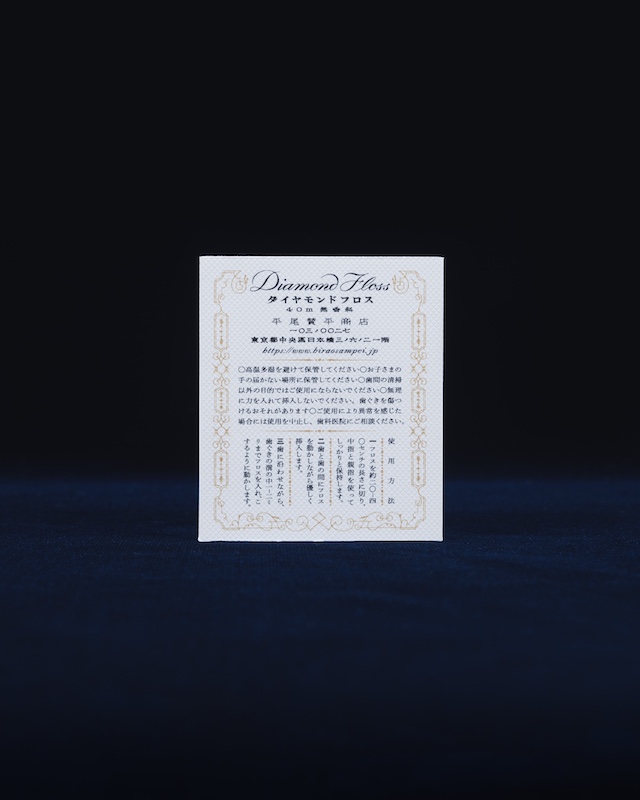 Diamond Floss
ダイヤモンドフロス
40m 無香料
平尾賛平商店
一〇三/〇〇二七
東京都中央區日本橋三ノ六ノ二一階
https://www.hiraosampei.jp
〇高温多湿を避けて保管してください〇お子さまの
手の届かない場所に保管してください〇歯間の清掃
以外の目的ではご使用にならないでください〇無理
に力を入れて挿入しないでください。歯ぐきを傷つ
けるおそれがあります〇ご使用により異常を感じた
場合には使用を中止し、歯科医院にご相談ください。
使用方法
一 フロスを約二〇-四
〇センチの長さに切り、
中指と親指を使って
しっかりと保持します。
二 歯と歯の間にフロス
を動かしながら優しく
挿入します。
三 歯に沿わせながら、
歯ぐきの溝の中一-二ミ
リまでフロスを入れ、こ
するように動かします。